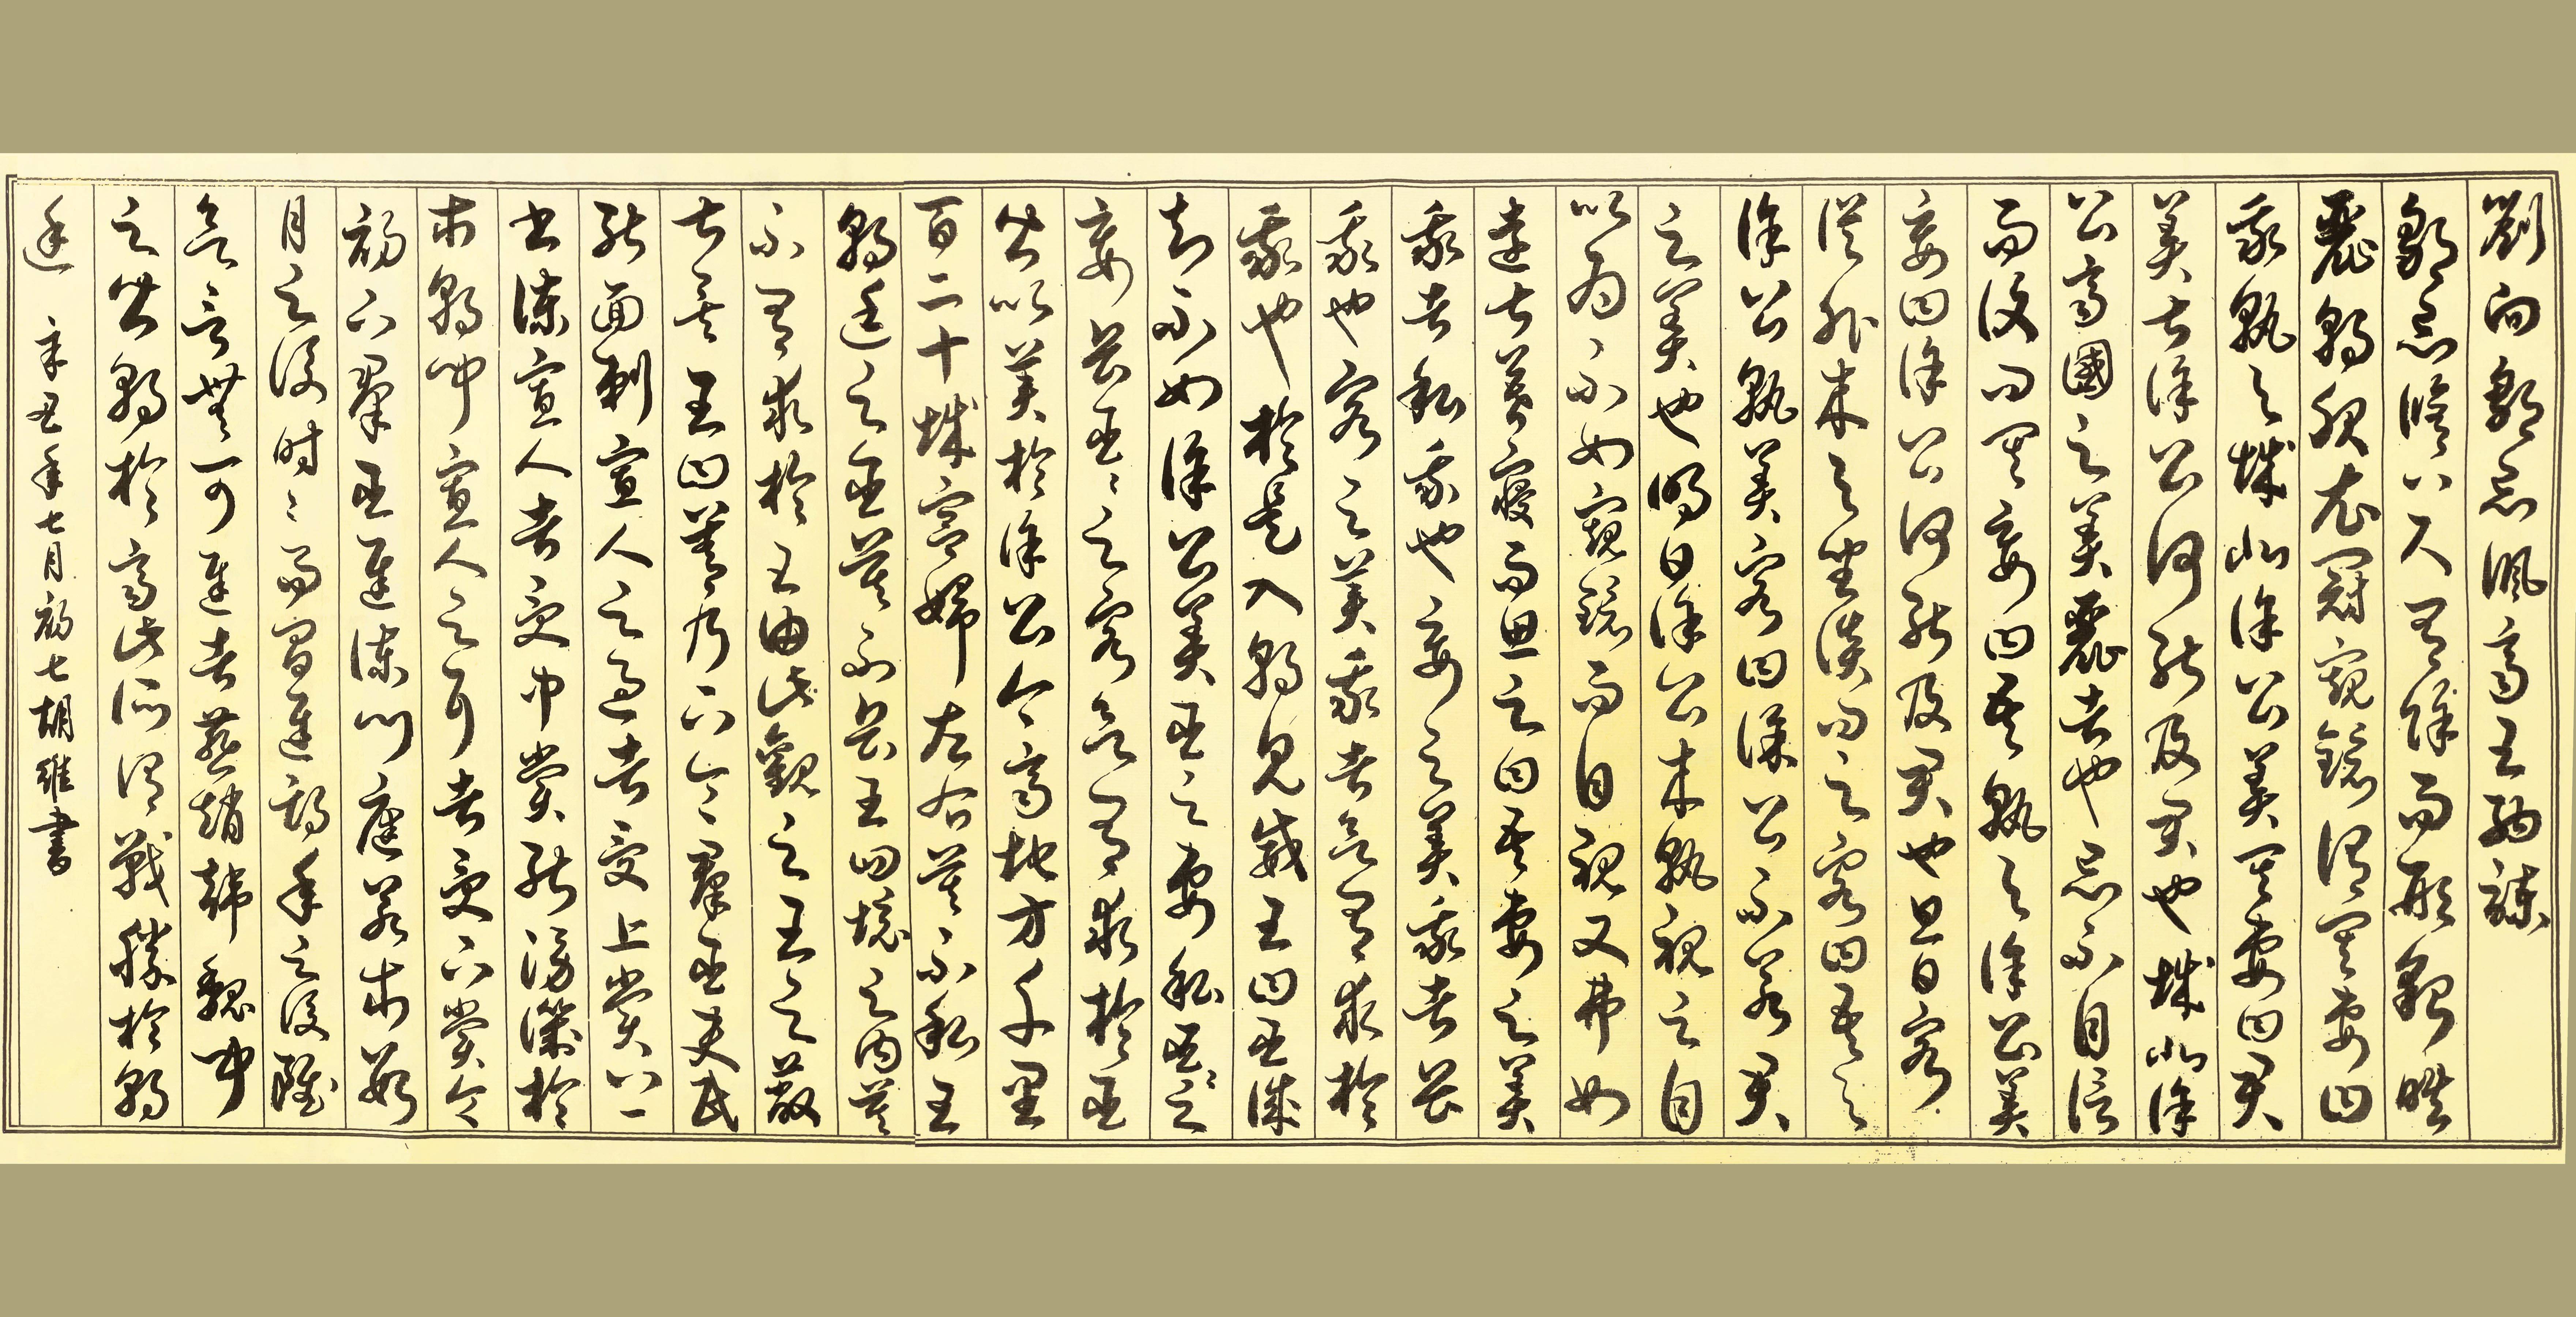 劉向鄒忌諷齊王納諫
鄒忌脩八尺有餘而形貌昳
麗朝服衣冠窺鏡謂其妻曰
我孰與城北徐公美其妻曰君
美甚徐公何能及君也城北徐
公齊國之美麗者也忌不自信
而復問其妾曰吾孰與徐公美
妾曰徐公何能及君也旦日客
從外來與坐談問之客曰吾與
徐公孰美客曰徐公不若君
之美也明日徐公來孰視之自
以為不如窺鏡而自視又弗如
遠甚暮寢而思之曰吾妻之美
我者私我也妾之美我者畏
我也客之美我者欲有求於
我也於是入朝見威王曰臣誠
知不如徐公美臣之妻私臣〻之
妾畏臣〻之客欲有求於臣
皆以美於徐公今齊地方千里
百二十城宮婦左右莫不私王
朝廷之臣莫不畏王四境之內莫
不有求於王由此觀之王之蔽
甚矣王曰善乃下令群臣吏民
能面刺寡人之過者受上賞
書諫寡人者受中賞能謗譏於
市朝聞寡人之耳者受下賞令
初下群臣進諫門庭若市數
月之後時〻而間進期年之後雖
欲言無可進者燕趙韓魏聞
之皆朝於齊此所謂戰勝於朝
廷 辛丑年七月初七胡維書